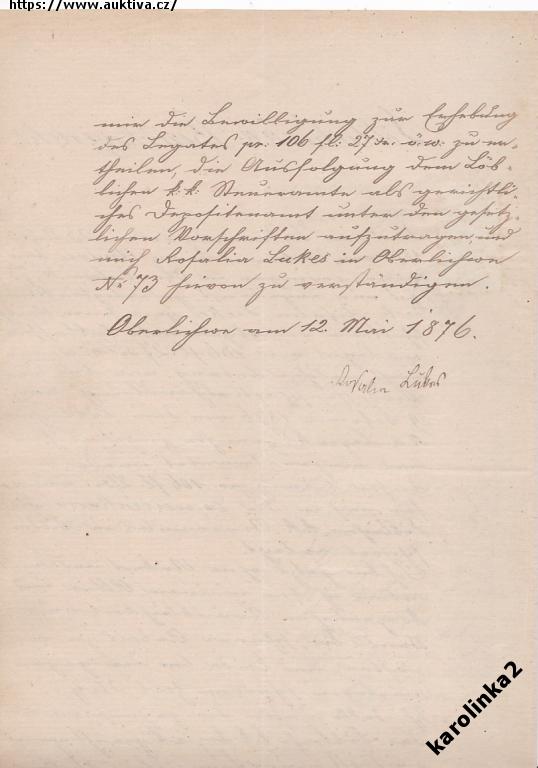 https://www.auktiva.cz/
mir die Bewilligung zur Erhebung
des Legates pr: 106 fl: 27 kr. ö. w: zu er-
theilen, die Ausfolgung dem Löb-
lichen k: k: Steueramte als gerichtli-
ches Depositenamt unter den gesetz-
lichen Vorschriften aufzutragen, und
mich Rosalia Lukes in Oberlichwe
No 73 hievon zu verständigen.
Oberlichwe am 12. Mai 1876.
Rosalia Lukes
karolinka2